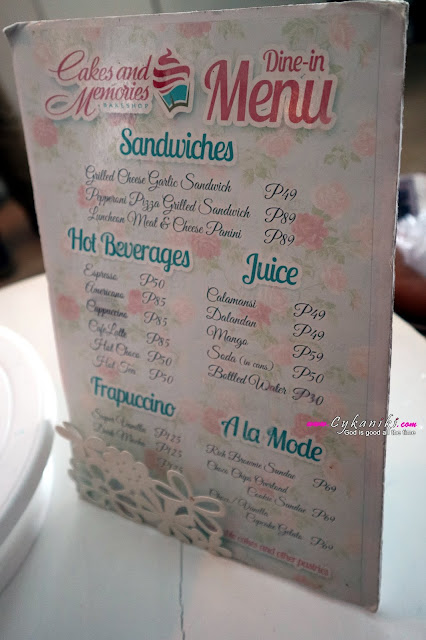 Cakes and
Memories
BAKESHOP
Dine-in
Menu
Sandwiches
Grilled Cheese Garlic Sandwich P49
Pepperoni Pizza Grilled Sandwich P89
Luncheon Meal & Cheese Panini P89
Hot Beverages
Espresso P50
Americano P85
Cappuccino P85
Cafe Latte P85
Hot Choco P50
Hot Tea P50
Juice
Calamansi P49
Dalandan P49
Mango P59
Soda (in cans) P50
Bottled Water P30
Frapuccino
Vanilla P125
P125
A la Mode
Rich Brownie Sundae P69
Choco Chips Overload
Cookie Sundae P69
Choco / Vanilla
Cupcake Gelato P69
cakes and other pastries
www.Cykaniki.com
God is good all the time